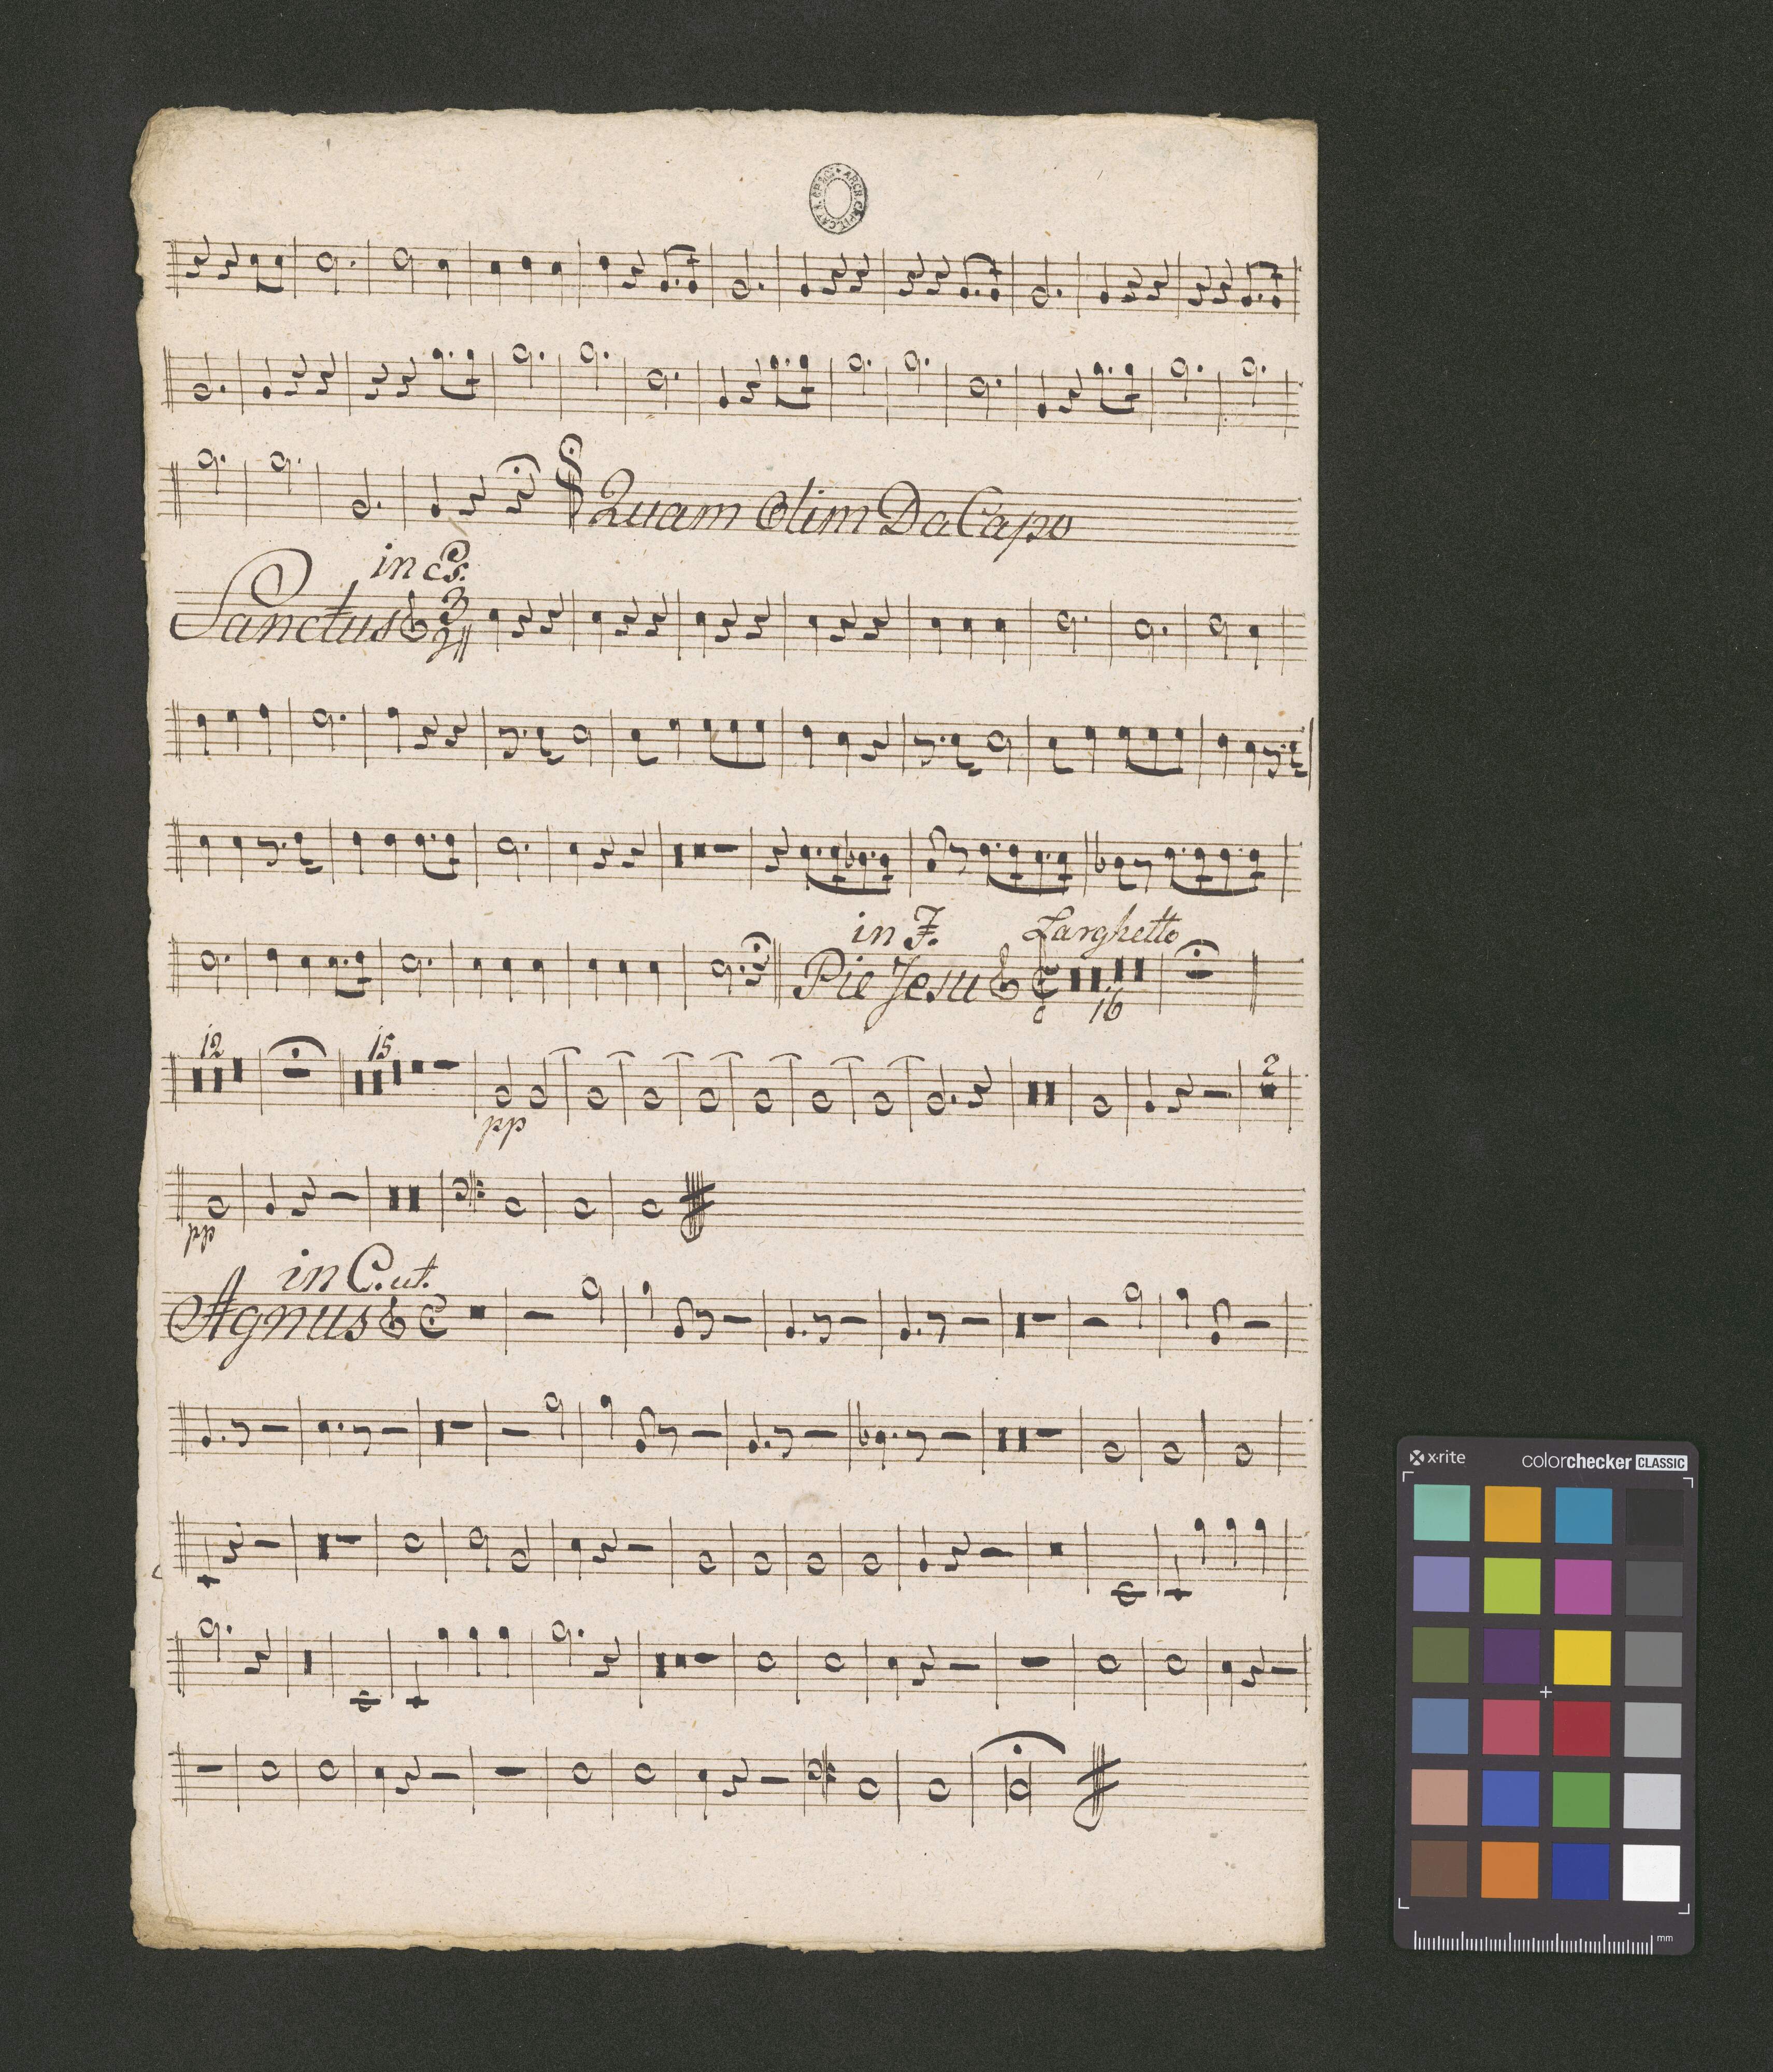 Quam Olim Da Capo
in Es.
Sanctus 3
in F. Larghetto
Pie Jesu
16
12 15
pp 2
pp
in C. ut.
Agnus
x·rite colorchecker CLASSIC
mm